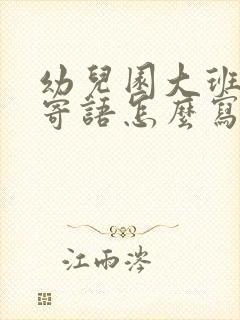 幼兒園大班
寄語怎麼寫
江雨涔